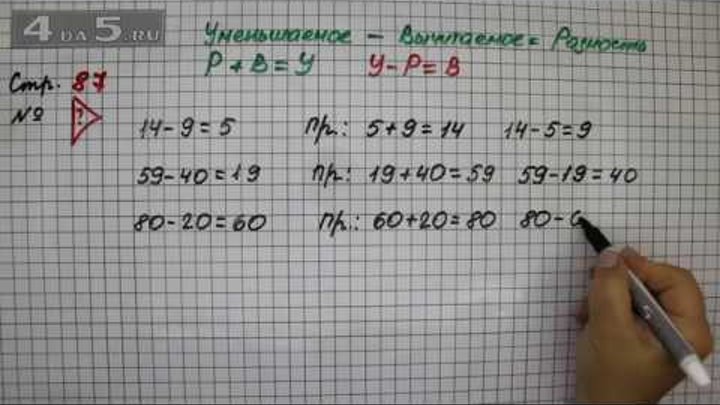 4 DA 5.RU
Уменьшаемое - Вычитаемое = Разность
Р + В = У У - Р = В
Стр. 87
№ ?
14 - 9 = 5 Пр.: 5 + 9 = 14 14 - 5 = 9
59 - 40 = 19 Пр.: 19 + 40 = 59 59 - 19 = 40
80 - 20 = 60 Пр.: 60 + 20 = 80 80 -